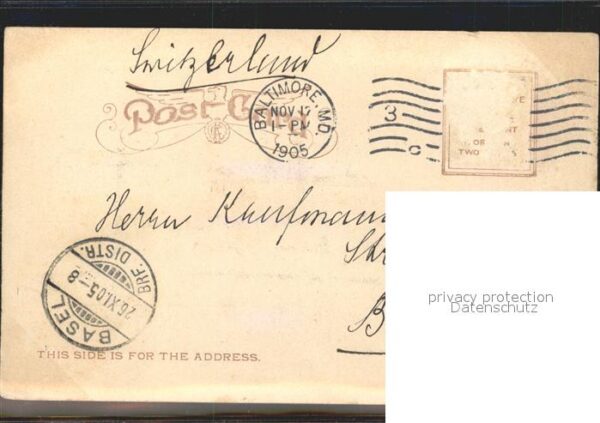 Switzerland
Post Card
BALTIMORE, MD.
NOV
1-PM
1905
3
C
TWO
Herrn Kaufmann
Str
B
BRF. DISTR.
26.XI.05.-8
BASEL
THIS SIDE IS FOR THE ADDRESS.
privacy protection
Datenschutz